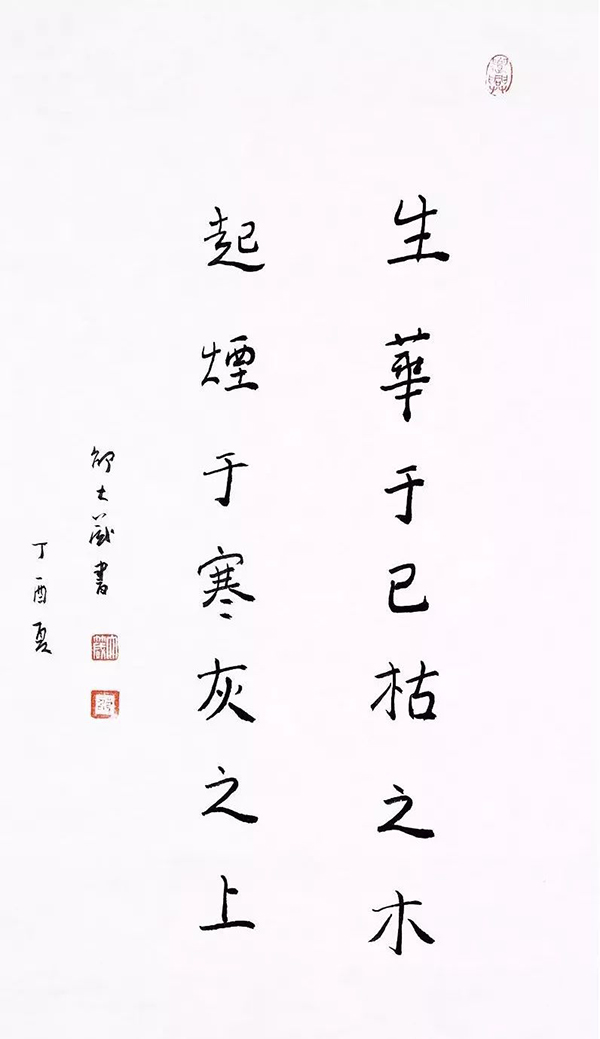 生華于已枯之木
起煙于寒灰之上
大箴書
丁酉夏